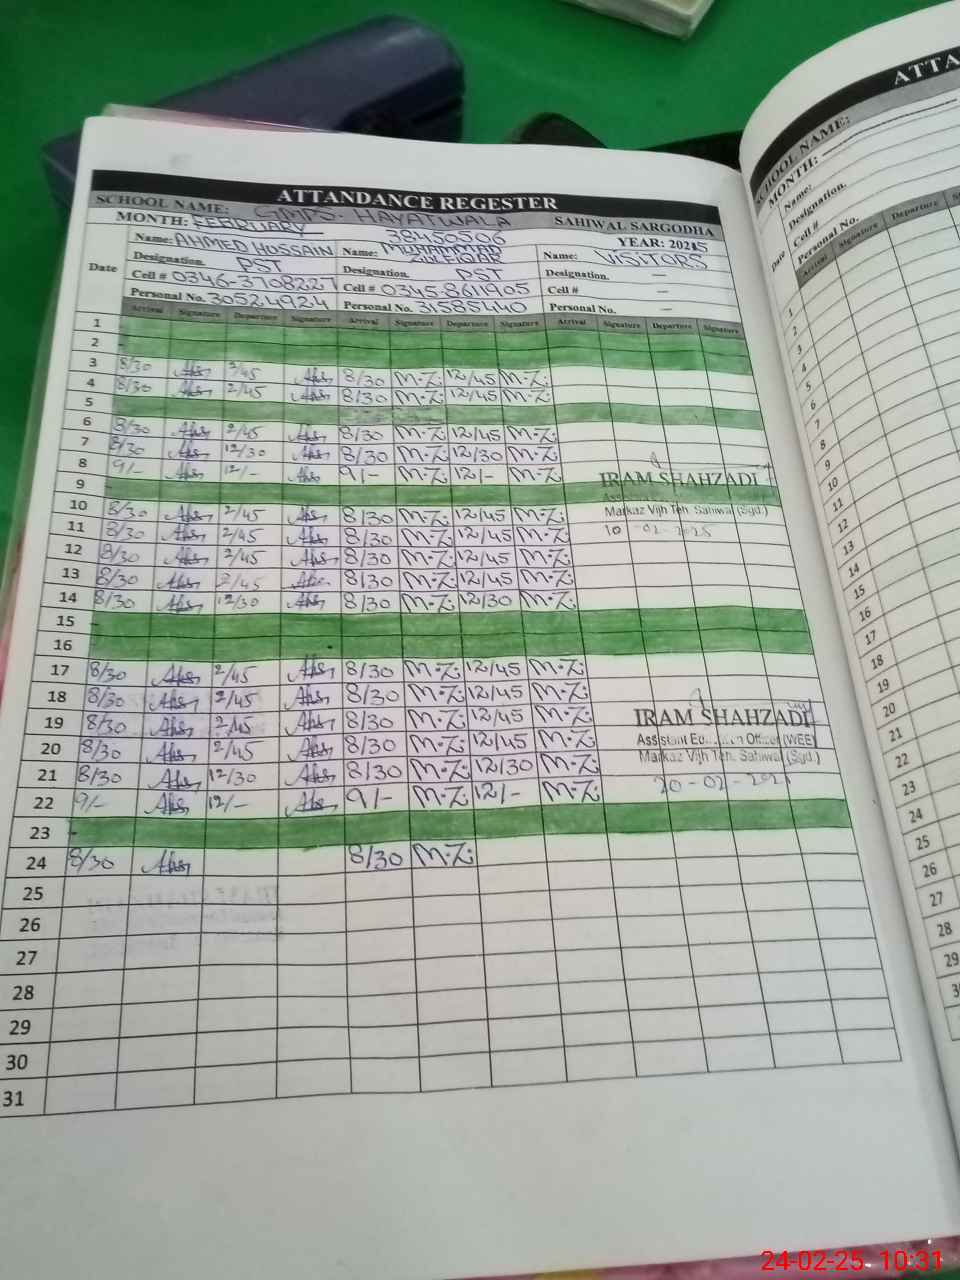 ATTANDANCE REGESTER
SCHOOL NAME: GMPS. HAYATWALA SAHIWAL SARGODHA
MONTH: FEBRUARY 38450506 YEAR: 2025
Name: AHMED HUSSAIN Name: MUHAMMAD ZULFIQAR Name: VISITORS
Designation. PST Designation. PST Designation. —
Cell # 0346-370822 Cell # 0345-8611905 Cell # —
Personal No. 30524924 Personal No. 31585440 Personal No. —
Date Arrival Signature Departure Signature Arrival Signature Departure Signature Arrival Signature Departure Signature
1
2
3 8/30 2/45 8/30 M.Z. 12/45 M.Z.
4 8/30 2/45 8/30 M.Z. 12/45 M.Z.
5
6 8/30 2/45 8/30 M.Z. 12/45 M.Z.
7 8/30 12/30 8/30 M.Z. 12/30 M.Z.
8 9/- 12/- 9/- M.Z. 12/- M.Z.
IRAM SHAHZADI
9
Markaz Vijh Teh. Sahiwal (Sgd.)
10 8/30 2/45 8/30 M.Z. 12/45 M.Z.
10 -02-2025
11 8/30 2/45 8/30 M.Z. 12/45 M.Z.
12 8/30 2/45 8/30 M.Z. 12/45 M.Z.
13 8/30 2/45 8/30 M.Z. 12/45 M.Z.
14 8/30 12/30 8/30 M.Z. 12/30 M.Z.
15
16
17 8/30 2/45 8/30 M.Z. 12/45 M.Z.
18 8/30 2/45 8/30 M.Z. 12/45 M.Z.
19 8/30 2/45 8/30 M.Z. 12/45 M.Z.
IRAM SHAHZADI
20 8/30 2/45 8/30 M.Z. 12/45 M.Z.
Assistant Officer (WEE)
Markaz Vijh Teh. Sahiwal (Sgd.)
21 8/30 12/30 8/30 M.Z. 12/30 M.Z.
20-02-202
22 9/- 12/- 9/- M.Z. 12/- M.Z.
23
24 8/30 8/30 M.Z.
25
26
27
28
29
30
31
ATTA
SCHOOL NAME:
MONTH:
Name:
Designation.
Cell #
Personal No.
Date Arrival Signature Departure
1
2
3
4
5
6
7
8
9
10
11
12
13
14
15
16
17
18
19
20
21
22
23
24
25
26
27
28
29
24-02-25 10:31